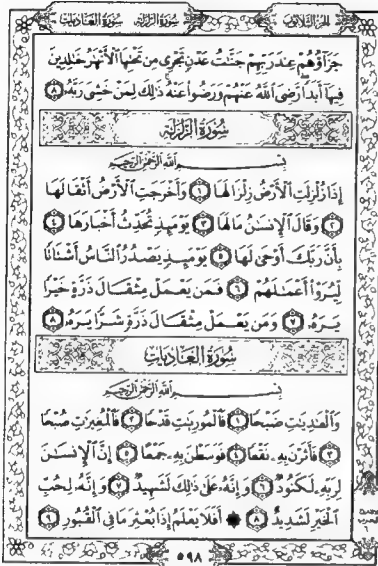 سُورَةُ العَادِيَات سُورَةُ الزَّلْزَلَة الجُزءُ الثَّلَاثُونَ
جَزَآؤُهُمْ عِندَ رَبِّهِمْ جَنَّٰتُ عَدْنٍ تَجْرِى مِن تَحْتِهَا ٱلْأَنْهَٰرُ خَٰلِدِينَ
فِيهَآ أَبَدًا رَّضِىَ ٱللَّهُ عَنْهُمْ وَرَضُوا۟ عَنْهُ ذَٰلِكَ لِمَنْ خَشِىَ رَبَّهُۥ ٨
سُورَةُ الزَّلْزَلَةِ
بِسْمِ ٱللَّهِ ٱلرَّحْمَٰنِ ٱلرَّحِيمِ
إِذَا زُلْزِلَتِ ٱلْأَرْضُ زِلْزَالَهَا ١ وَأَخْرَجَتِ ٱلْأَرْضُ أَثْقَالَهَا
٢ وَقَالَ ٱلْإِنسَٰنُ مَا لَهَا ٣ يَوْمَئِذٍ تُحَدِّثُ أَخْبَارَهَا ٤
بِأَنَّ رَبَّكَ أَوْحَىٰ لَهَا ٥ يَوْمَئِذٍ يَصْدُرُ ٱلنَّاسُ أَشْتَاتًا
لِّيُرَوْا۟ أَعْمَٰلَهُمْ ٦ فَمَن يَعْمَلْ مِثْقَالَ ذَرَّةٍ خَيْرًا
يَرَهُۥ ٧ وَمَن يَعْمَلْ مِثْقَالَ ذَرَّةٍ شَرًّا يَرَهُۥ ٨
سُورَةُ العَادِيَاتِ
بِسْمِ ٱللَّهِ ٱلرَّحْمَٰنِ ٱلرَّحِيمِ
وَٱلْعَٰدِيَٰتِ ضَبْحًا ١ فَٱلْمُورِيَٰتِ قَدْحًا ٢ فَٱلْمُغِيرَٰتِ صُبْحًا
٣ فَأَثَرْنَ بِهِۦ نَقْعًا ٤ فَوَسَطْنَ بِهِۦ جَمْعًا ٥ إِنَّ ٱلْإِنسَٰنَ
لِرَبِّهِۦ لَكَنُودٌ ٦ وَإِنَّهُۥ عَلَىٰ ذَٰلِكَ لَشَهِيدٌ ٧ وَإِنَّهُۥ لِحُبِّ
ٱلْخَيْرِ لَشَدِيدٌ ٨ ۞ أَفَلَا يَعْلَمُ إِذَا بُعْثِرَ مَا فِى ٱلْقُبُورِ ٩
٥٩٨